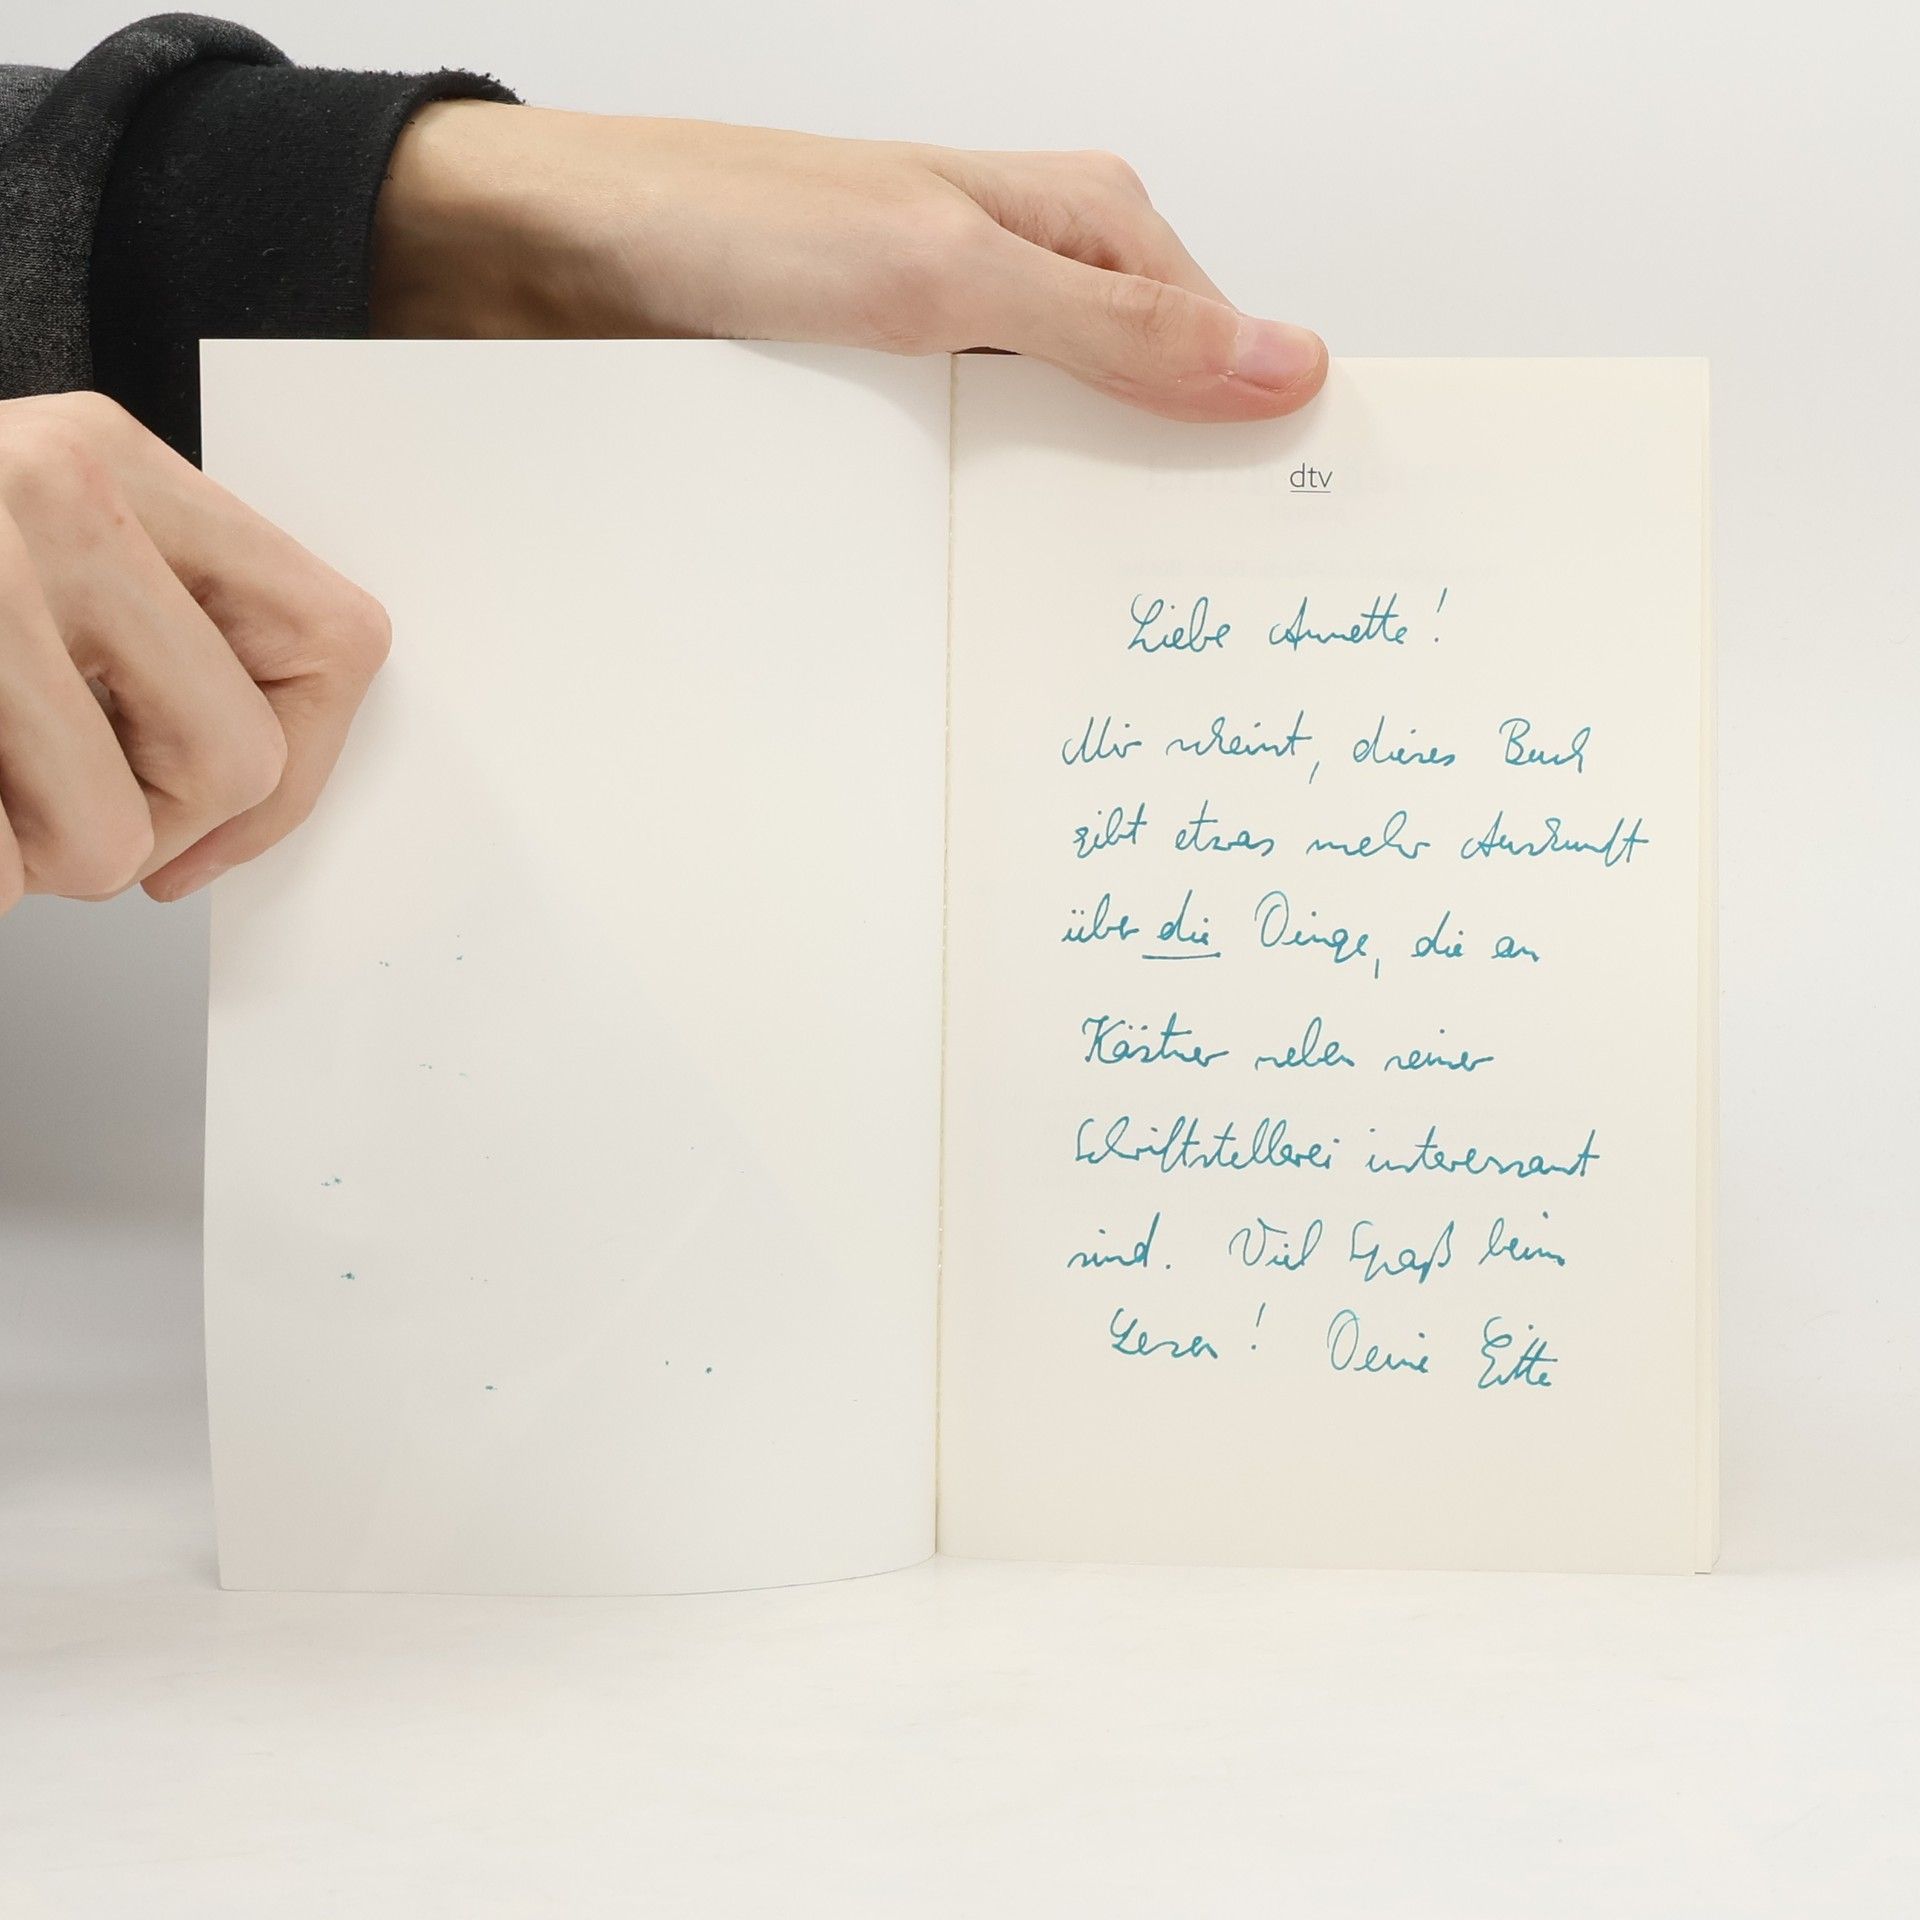 dtv
Liebe Annette!
Mir scheint, dieses Buch
gibt etwas mehr Auskunft
über die Dinge, die an
Kästner neben seiner
Schriftstellerei interessant
sind. Viel Spaß beim
Lesen! Deine Gitte